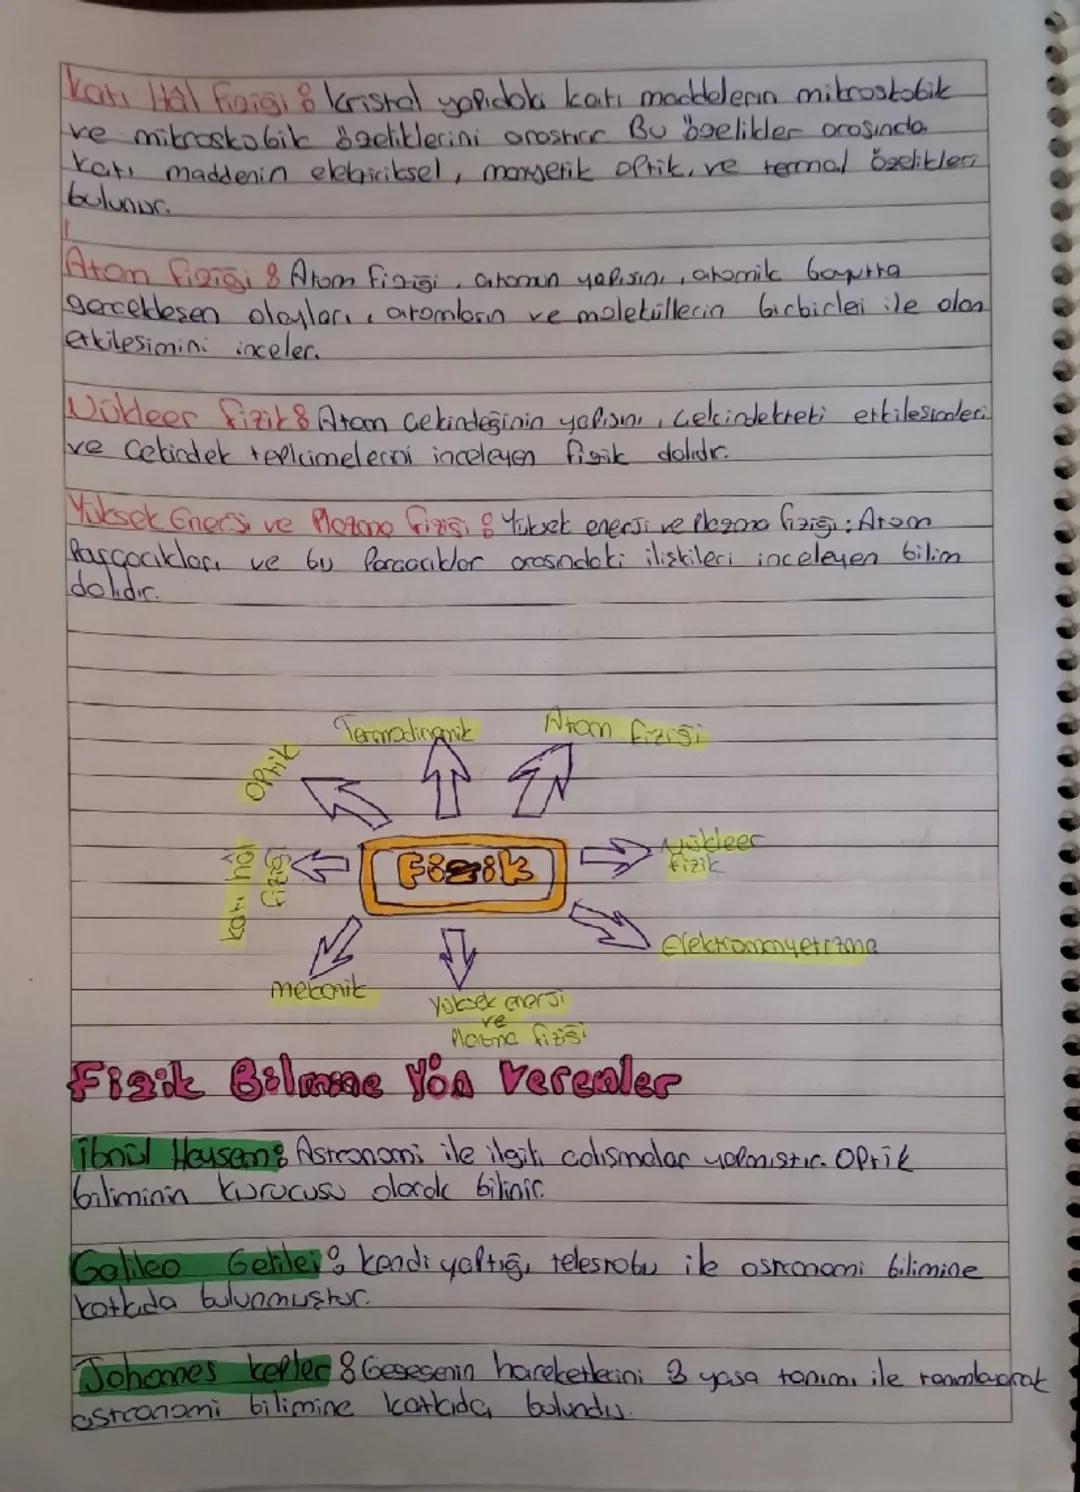 Katı Hâl Fiziği : kristal yapıdaki katı maddelerin mikroskobik
ve mikroskobik özeliklerini araştırır Bu özelikler arasında
katı maddenin elektriksel, manyetik optik, ve termal özelikleri
bulunur.
Atom fiziği : Atom fiziği, atomun yapısını, atomik boyutta
gerceklesen olayları, atomların ve moleküllerin birbirlei ile olan
etkilesimini inceler.
Nükleer fizik : Atom Cekindeğinin yapısını, Cekindekteki etkilesimleri
ve Cekirdek tepkimelerini inceleyen fizik dalıdır.
Yüksek Enerji ve Plazma fiziği : Yüksek enerji ve Plazma fiziği : Atom
Parçacıkları ve bu Parcacıklar arasındaki iliskileri inceleyen bilim
dalıdır.
Termodinamik
Atom fiziği
Optik
Fizik
Nükleer
fizik
katı hâl
fiziği
Elektromanyetizma
mekanik
Yüksek enerji
ve
Plazma fiziği
Fizik Bilimine Yön Verenler
ibnül Heysem : Astronomi ile ilgili calısmalar yapmıstır. Optik
biliminin kurucusu olarak bilinir.
Galileo Galilei : kendi yaptığı teleskobu ile astronomi bilimine
katkıda bulunmuştur.
Johannes kepler : Gezegenin hareketlerini 3 yasa tanımı ile tanımlayarak
astronomi bilimine katkıda bulundu.